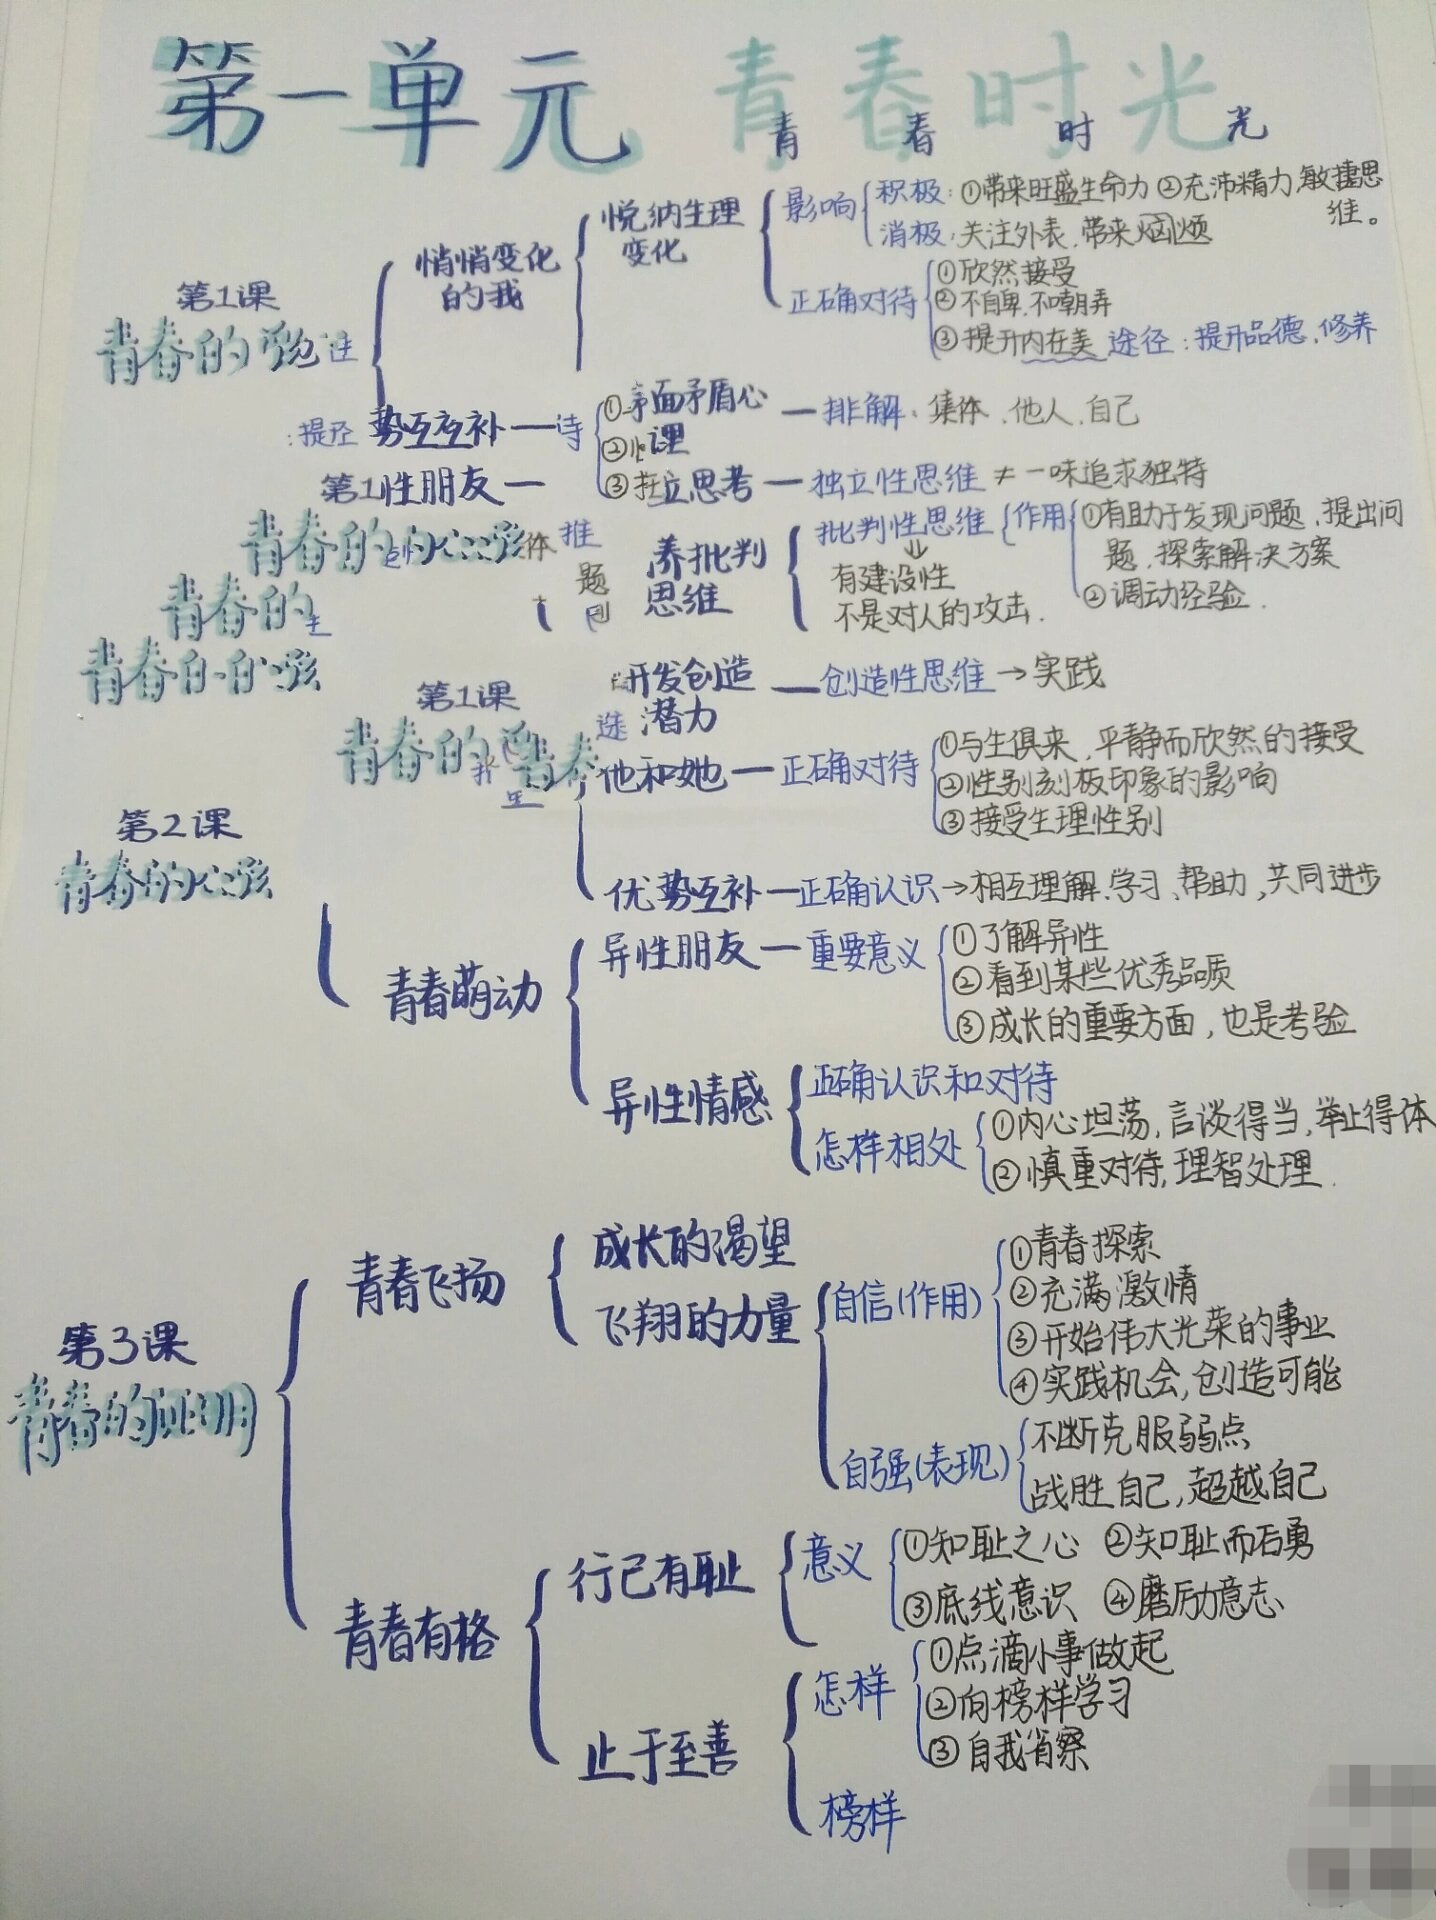 第一单元 青春时光
青春时光
第1课
青春的
悄悄变化
的我
悦纳生理
变化
影响
积极：①带来旺盛生命力 ②充沛精力，敏捷思
维。
消极：关注外表，带来烦恼
正确对待
①欣然接受
②不自卑，不嘲弄
③提升内在美 途径：提升品德，修养
：提
势互补
待
①面矛盾心
②理
排解：集体、他人、自己
③立思考 — 独立性思维 ≠ 一味追求独特
第1性朋友
青春的
推
题
养批判
思维
批判性思维
有建设性
不是对人的攻击.
作用
①有助于发现问题，提出问
题，探索解决方案
②调动经验.
青春的
青春的
开发创造
潜力
创造性思维→实践
第1课
青春的
青春
他和她 — 正确对待
①与生俱来，平静而欣然的接受
②性别刻板印象的影响
③接受生理性别
第2课
青春的心弦
优势互补 — 正确认识→相互理解、学习、帮助，共同进步
青春萌动
异性朋友 — 重要意义
①了解异性
②看到某些优秀品质
③成长的重要方面，也是考验
异性情感
正确认识和对待
怎样相处
①内心坦荡，言谈得当，举止得体
②慎重对待，理智处理.
第3课
青春的证明
青春飞扬
成长的渴望
飞翔的力量
自信(作用)
①青春探索
②充满激情
③开始伟大光荣的事业
④实践机会，创造可能
自强(表现)
不断克服弱点
战胜自己，超越自己
青春有格
行己有耻
意义
①知耻之心 ②知耻而后勇
③底线意识 ④磨励意志
止于至善
怎样
①点滴小事做起
②向榜样学习
③自我省察
榜样